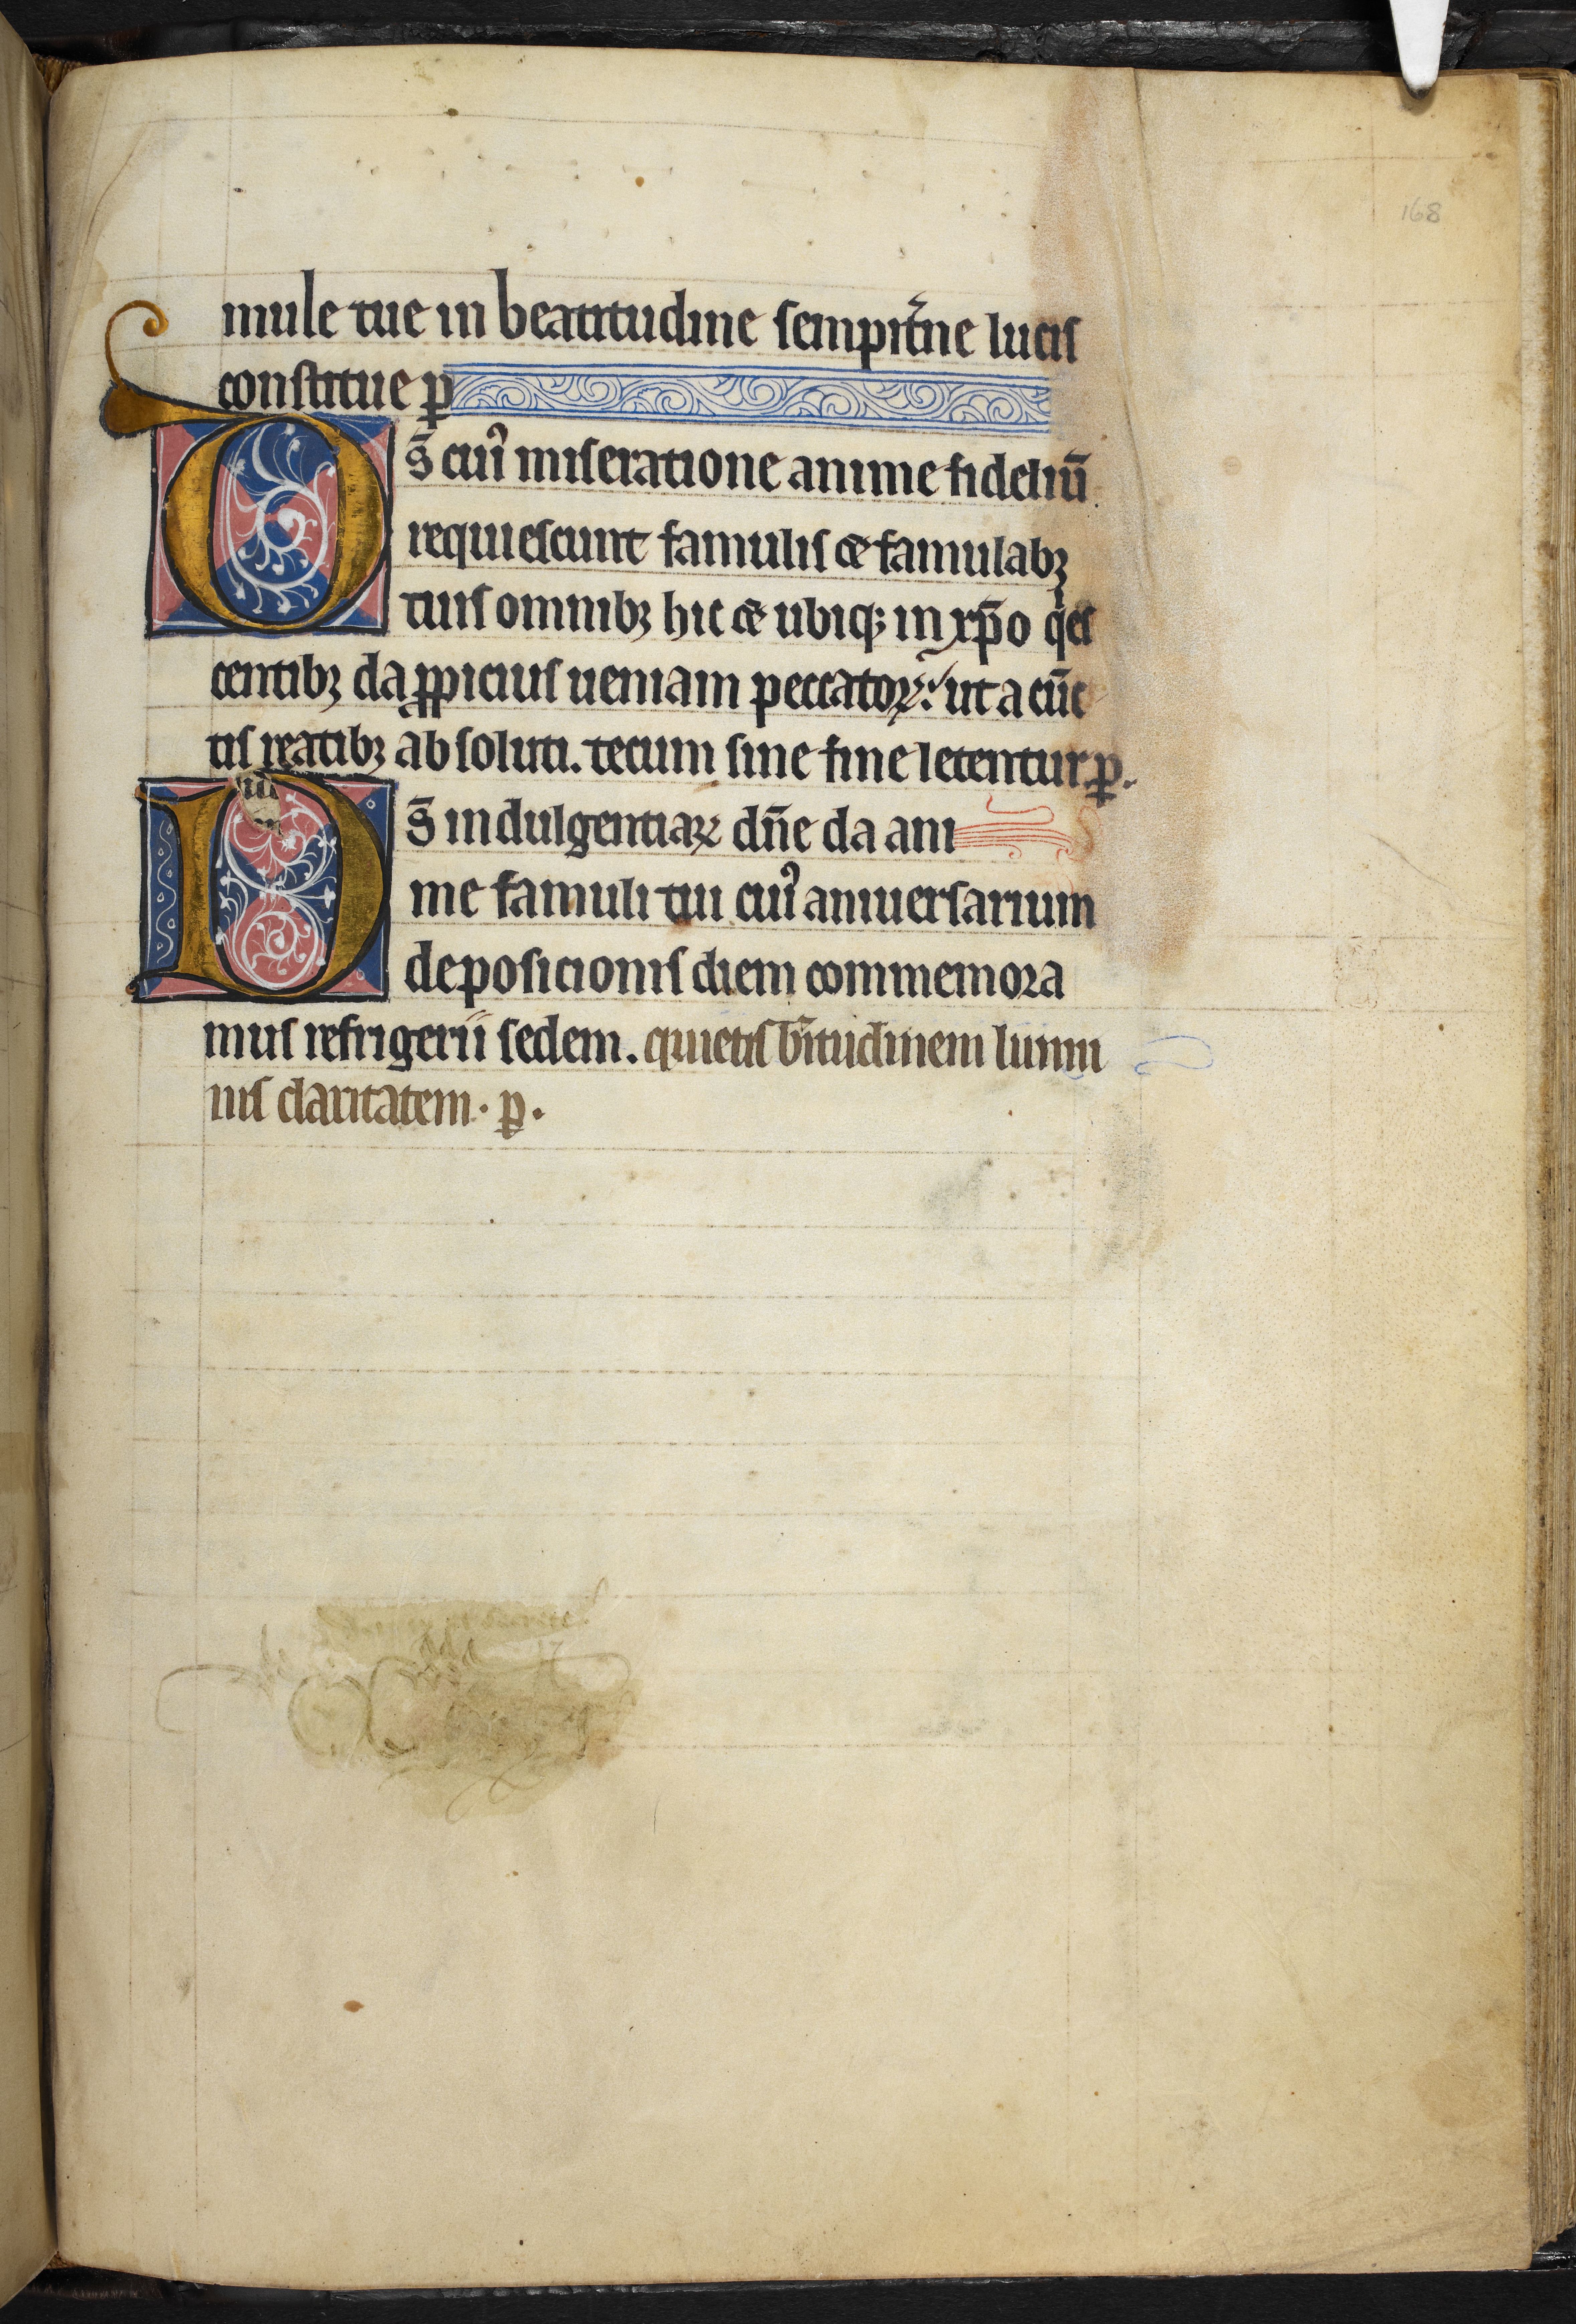 168
mule tue in beatitudine sempit̃ne lucis
constitue ꝑ
Ds̄ cuiꝰ miseratione anime fideliū
requiescunt famulis et famulabꝫ
tuis omnibꝫ hic et ubiqꝫ in xp̄o qⁱes
centibꝫ da ꝓpicius ueniam peccatoꝝ: ut a cūc
tis reatibꝫ absoluti. tecum sine fine letentur ꝑ.
Ds̄ indulgentiaꝝ dn̄e da ani
me famuli tui cuiꝰ anniuersarium
deposicionis diem commemora
mus refrigerii sedem. quietis b̄itudinem lumi
nis claritatem. ꝑ.